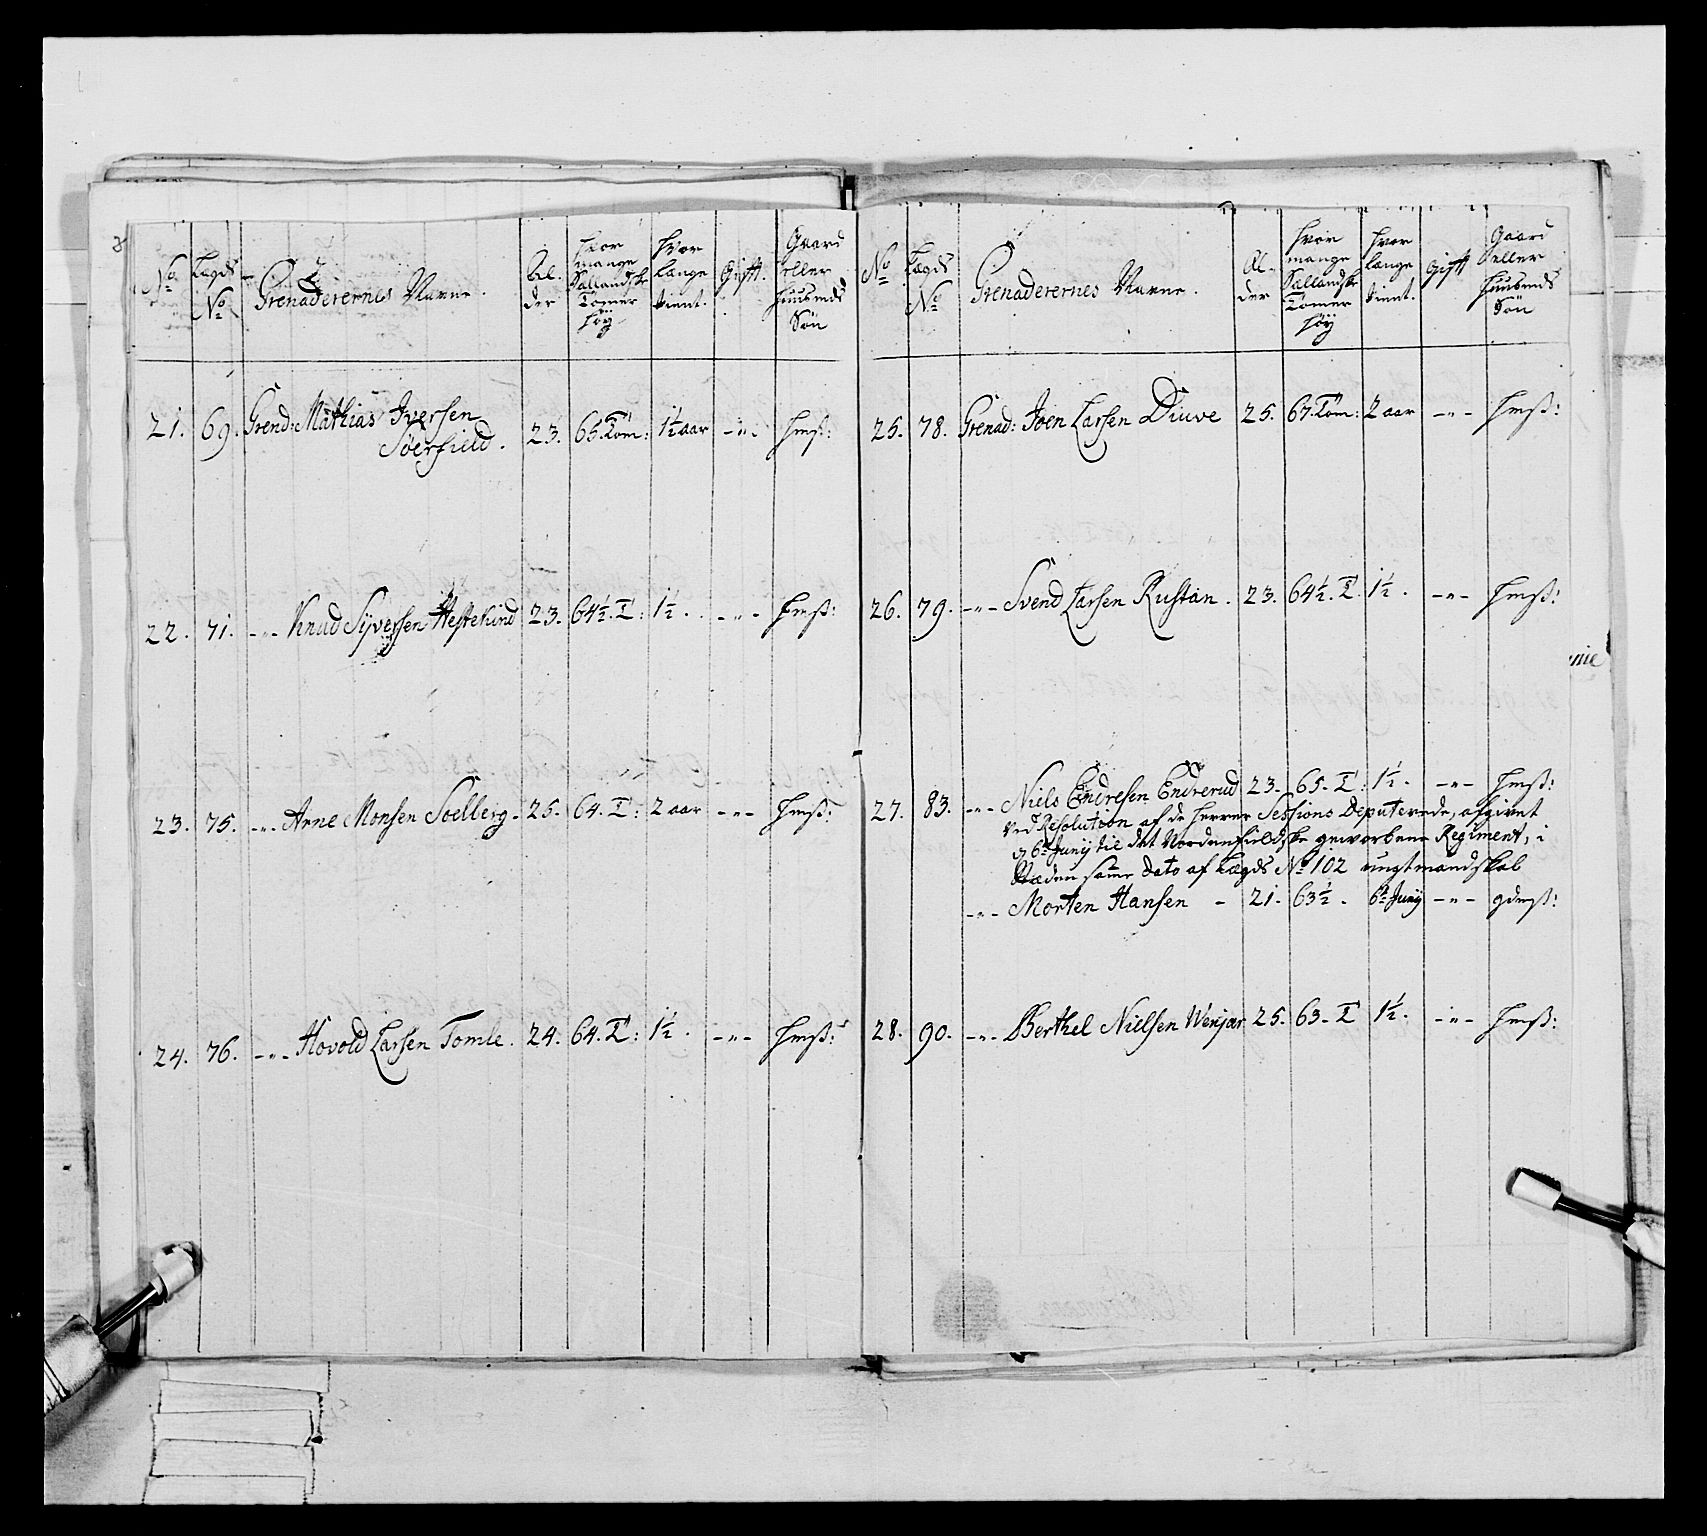 No
Lægds No
Grenaderernes Navne.
Al-
der
hvor
mange
Sællandske
Tomer
høy
hvor
længe
tient.
Gift.
Gaard
eller
huusmds
Søn
21. 69. Grend: Mathias Iversen
Søerfield. 23. 65. Tom: 1½ aar -"- hmß:
22. 71. -"- Knud Syversen Hestekind 23. 64½. T: 1½. -"- hmß:
23. 75. -"- Arne Monsen Soelberg. 25. 64. T: 2 aar -"- hmß:
24. 76. -"- Hovold Larsen Tomle. 24. 64. T: 1½. -"- hmß:
No
Lægds No
Grenaderernes Navne.
Al-
der
hvor
mange
Sællandske
Tomer
høy
hvor
længe
tient.
Gift
Gaard
eller
huusmds
Søn
25. 78. Grenad: Joen Larsen Diuve 25. 67. Tom: 2 aar -"- hmß:
26. 79. -"- Svend Larsen Rustan. 23. 64½. T 1½. -"- hmß:
27. 83. -"- Niels Endresen Endrerud 23. 65. T: 1½. -"- hmß:
ved Resolution af de herrer Sessions Deputerede, afgivet
d 6te Junij til det Nordenfieldske geworbene Regiment, i
Stæden samme dato af Lægds No 102 ungtmandskab
-"- Morten Hansen - 21. 63½. 6te Junij -"- gdmß:
28. 90. -"- Berthel Nielsen Wenjar 25. 63. T 1½. -"- hmß: